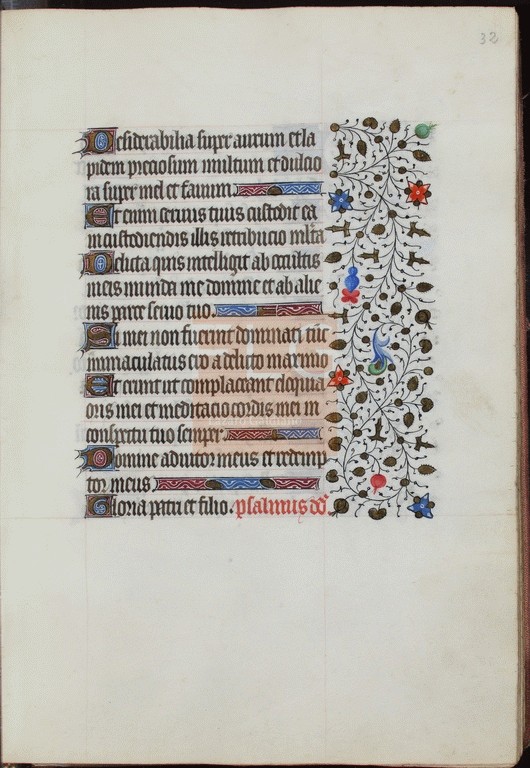 32
Desiderabilia super aurum et la
pidem preciosum multum et dulcio
ra super mel et fauum.
Et enim seruus tuus custodit ea
in custodiendis illis retribucio mlta
Delicta quis intelligit ab occultis
meis munda me domine et ab alie
nis parce seruo tuo.
Si mei non fuerint dominati tūc
immaculatus ero a delicto maximo
Et erunt ut complaceant eloquia
oris mei et meditacio cordis mei in
conspectu tuo semper.
Domine adiutor meus et redemp
tor meus.
Gloria patri et filio. psalmus dd̄.